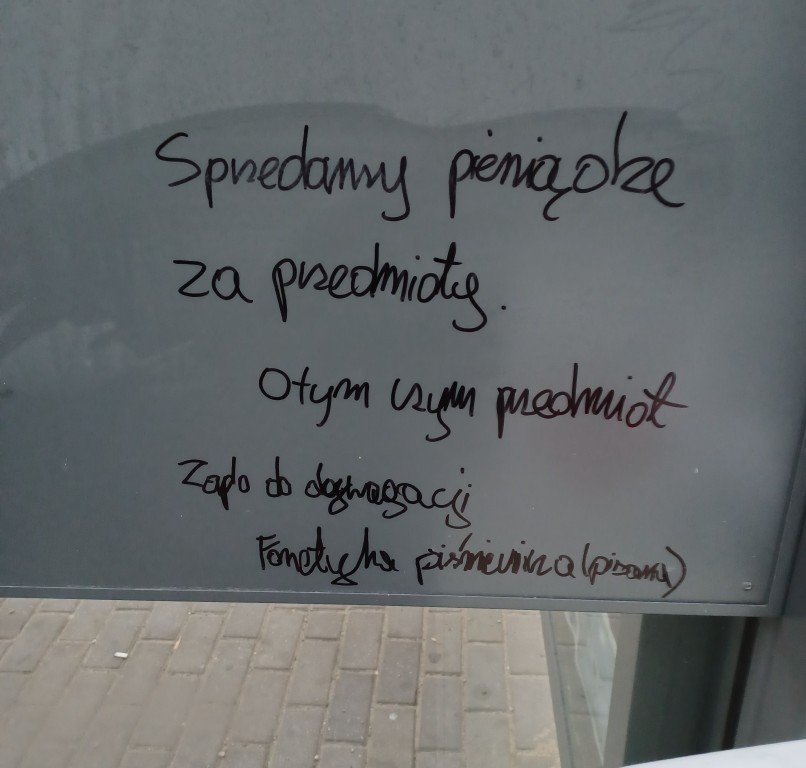 Sprzedamy pieniądze
za przedmioty.
O tym czym przedmiot
do
Fonetyka piśmiennicza (pisana)